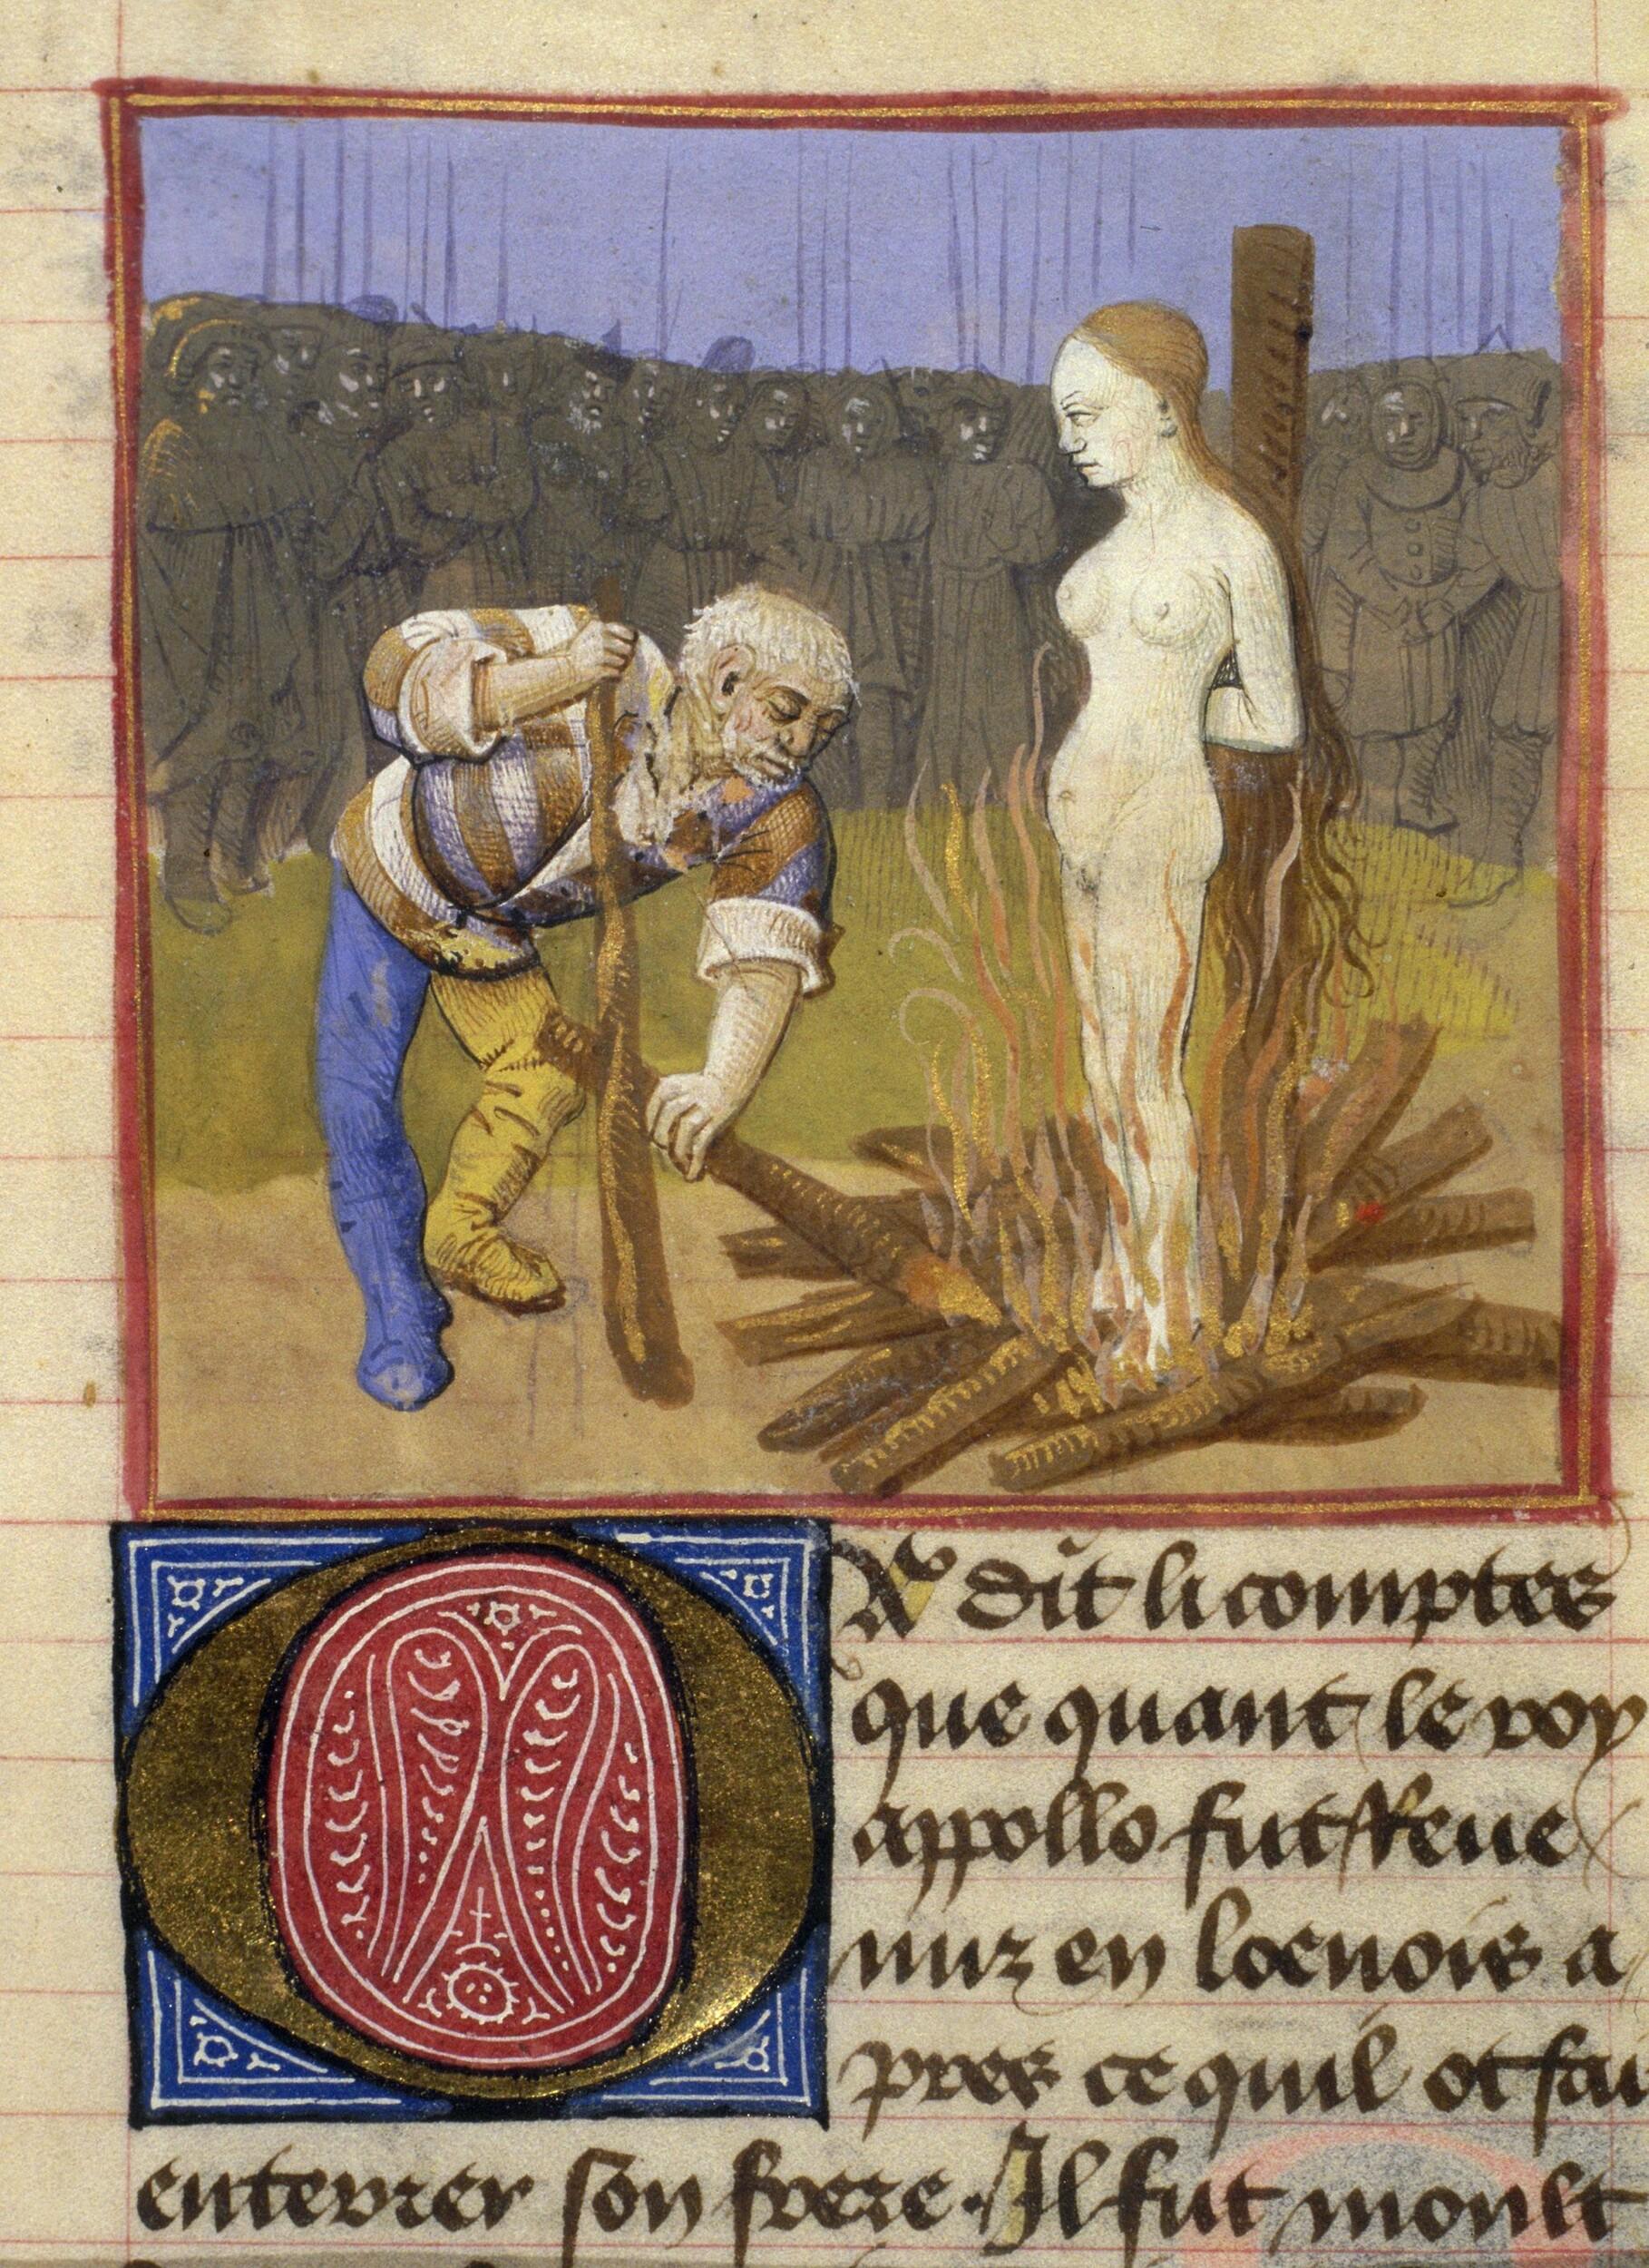 Or dit li comptes
que quant le roy
appollo fut Reue
nuz en loenois a
pres ce quil ot fai
enterrer son frere. Il fut moult